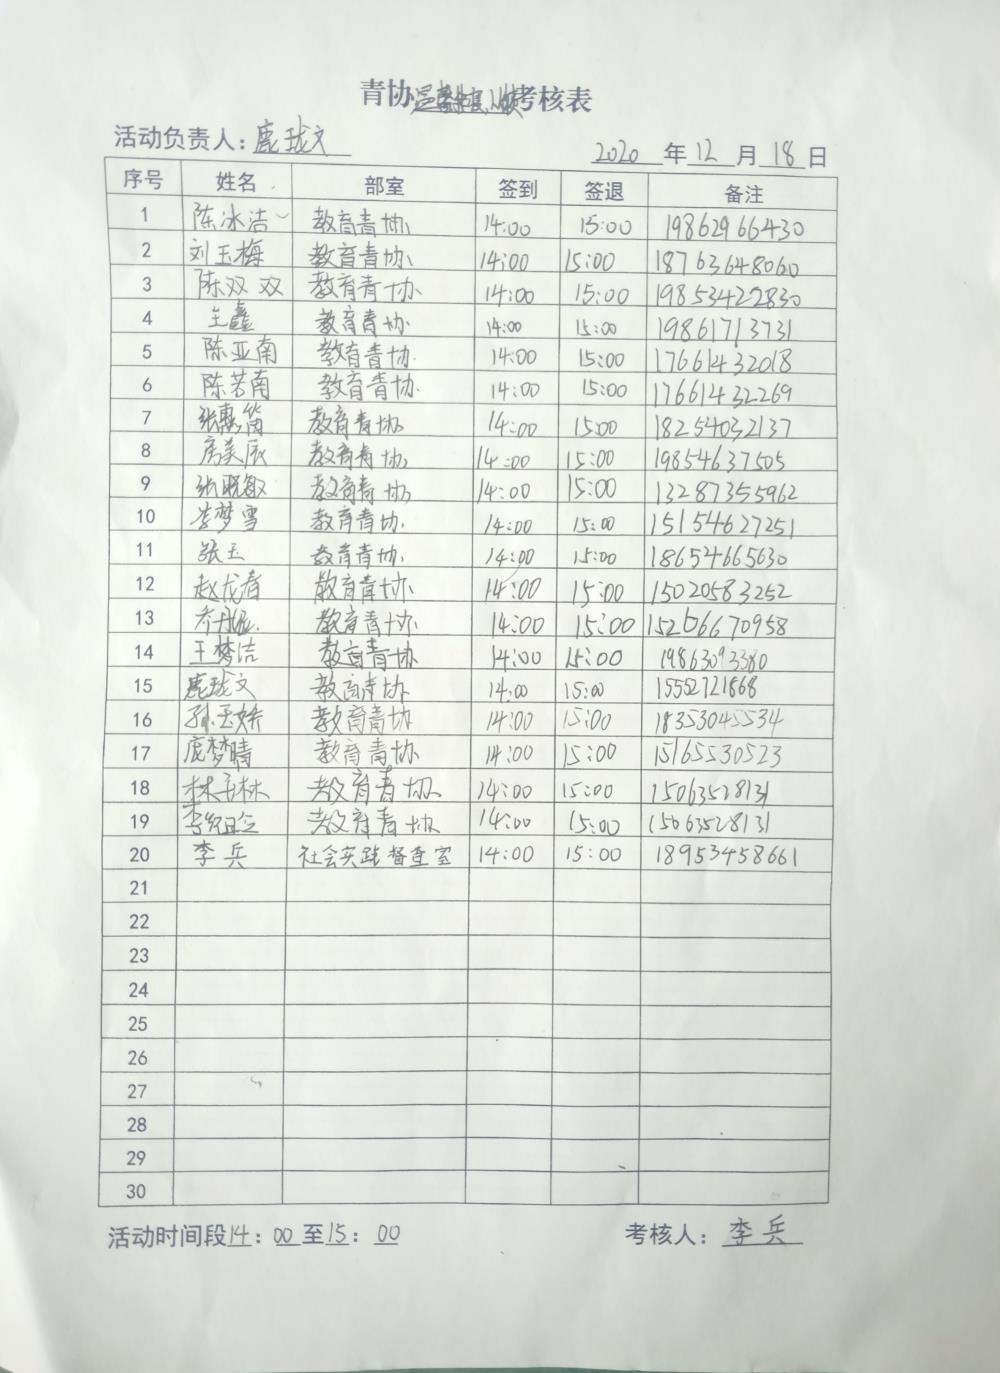 青协 考核表
活动负责人：鹿珑文 2020 年 12 月 18 日
序号 姓名 部室 签到 签退 备注
1 陈冰洁 教育青协 14:00 15:00 19862966430
2 刘玉梅 教育青协 14:00 15:00 18763648060
3 陈双双 教育青协 14:00 15:00 19853422830
4 王鑫 教育青协 14:00 15:00 19861713731
5 陈亚南 教育青协 14:00 15:00 17661432018
6 陈若南 教育青协 14:00 15:00 17661432269
7 教育青协 14:00 15:00 18254032137
8 房美辰 教育青协 14:00 15:00 19854637505
9 张晓敏 教育青协 14:00 15:00 13287355962
10 李梦雪 教育青协 14:00 15:00 15154627251
11 张玉 教育青协 14:00 15:00 18654665630
12 赵龙春 教育青协 14:00 15:00 15020583252
13 教育青协 14:00 15:00 15266670958
14 王梦洁 教育青协 14:00 15:00 19863093380
15 鹿珑文 教育青协 14:00 15:00 15552721868
16 教育青协 14:00 15:00 18353045534
17 庞梦晴 教育青协 14:00 15:00 15165530523
18 教育青协 14:00 15:00 15063528131
19 教育青协 14:00 15:00 15063528131
20 李兵 社会实践督查室 14:00 15:00 18953458661
21
22
23
24
25
26
27
28
29
30
活动时间段14：00至15：00 考核人：李兵